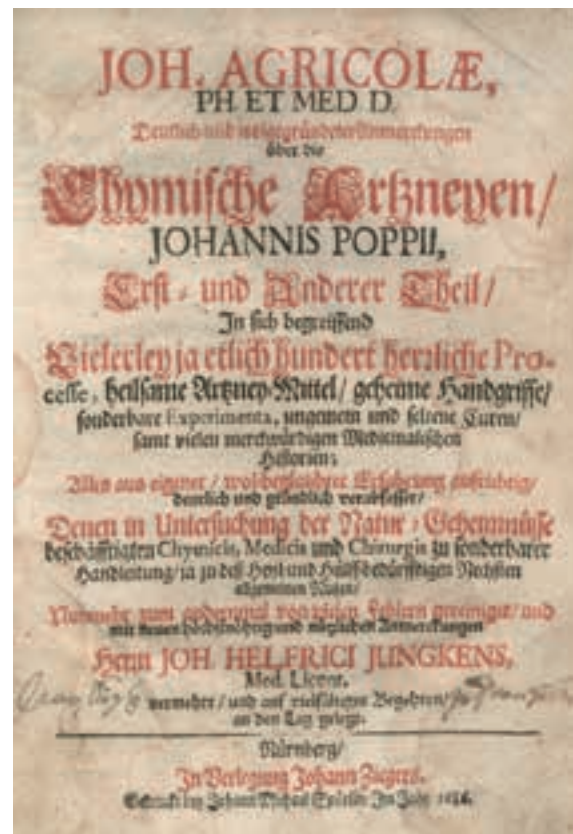 JOH. AGRICOLÆ,
PH. ET MED. D.
Deutlich und wolgegründeter Anmerckungen
über die
Chymische Artzneyen/
JOHANNIS POPPII,
Erst- und Anderer Theil/
In sich begreiffend
Vielerley ja etlich hundert herrliche Pro-
cesse, heilsame Artzney-Mittel/ geheime Handgriffe/
sonderbare Experimenta, ungemein und seltene Curen/
samt vielen merckwürdigen Medicinalischen
Historien;
Alles aus eigener/ Erfahrung auffrichtig/
deutlich und gründlich verabfasset/
Denen in Untersuchung der Natur-Geheimnüsse
beschäfftigten Chymicis, Medicis und Chirurgis zu sonderbarer
Handleitung/ ja zu deß Heyl- und Hülff-bedürfftigen Nechsten
allgemeinen Nutzen/
Nunmehr zum andernmal von vielen Fehlern gereiniget/ und
mit neuen und nützlichen Anmerckungen
Herrn JOH. HELFRICI JUNGKENS,
Med. Licent.
vermehrt/ und auf vielfältiges Begehren/
an den Tag gelegt.
Nürnberg/
In Verlegung Johann Ziegers.
Gedruckt bey Johann Michael Spörlin. Im Jahr 1686.